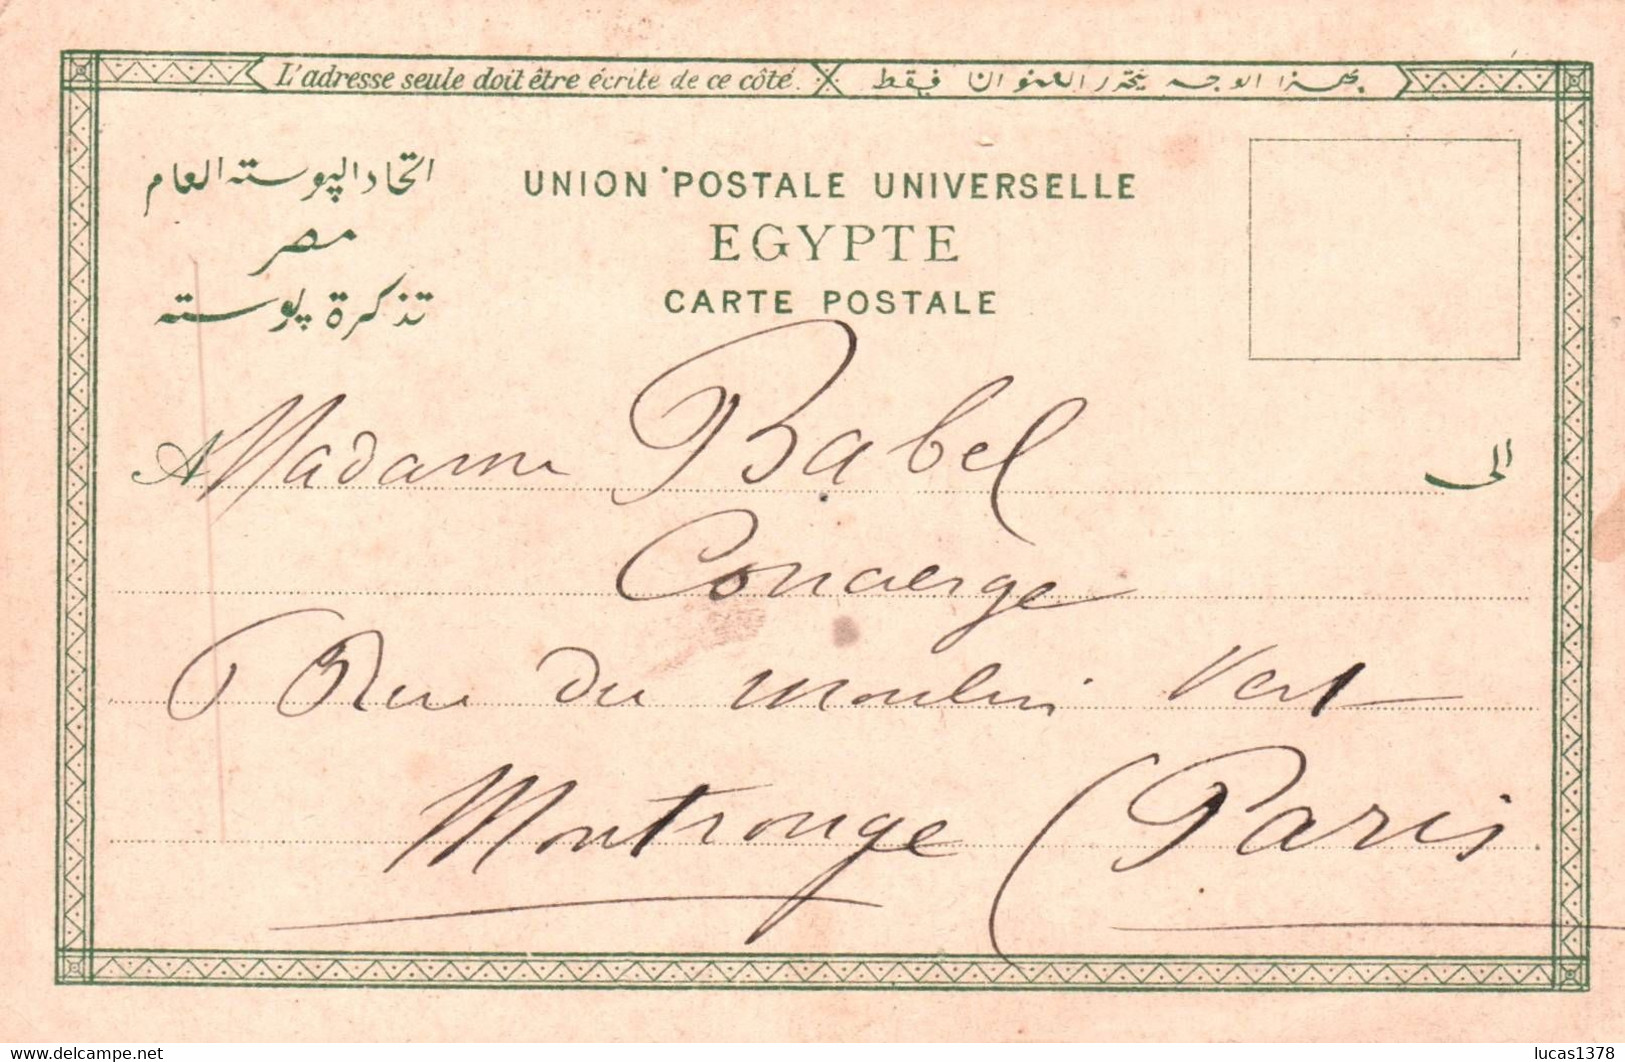 L'adresse seule doit être écrite de ce côté.
بهذا الوجه يتحرر العنوان فيقط
اتحاد الپوسته العام
مصر
تذكرة پوسته
UNION POSTALE UNIVERSELLE
EGYPTE
CARTE POSTALE
A Madame Babel الى
Concierge
Rue du moulin Vert
Montrouge (Paris
delcampe.net
lucas1378